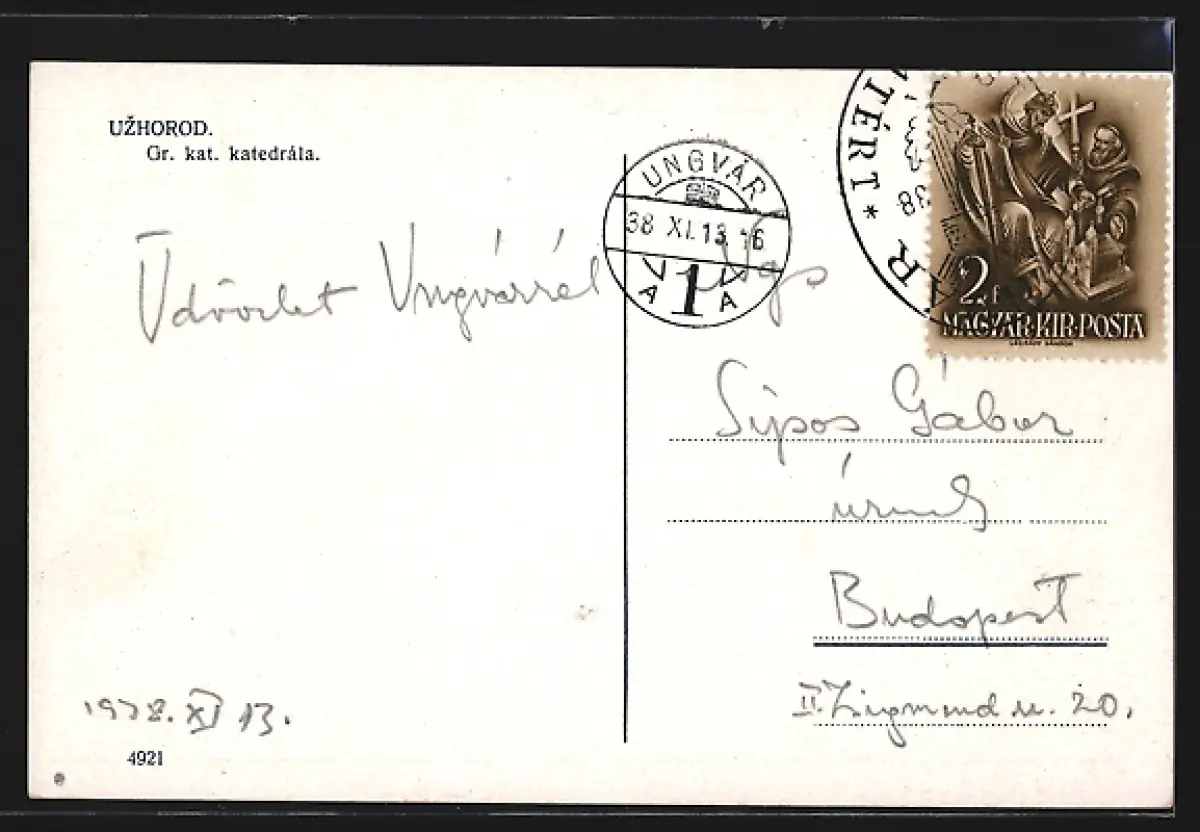 UŽHOROD.
Gr. kat. katedrála.
UNGVÁR
38 XI. 13. 16
1
A A
TÉRT *
38
2 f
MAGYAR·KIR·POSTA
Üdvözlet Ungvárról
Ngs
Sipos Gábor
úrnak
Budapest
II. Zsigmond u. 20.
1938. XI 13.
4921